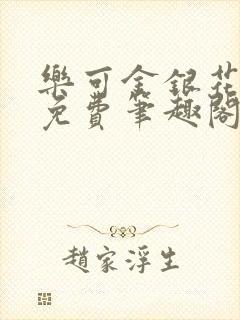 樂可金銀花
免費筆趣閣
趙家浮生